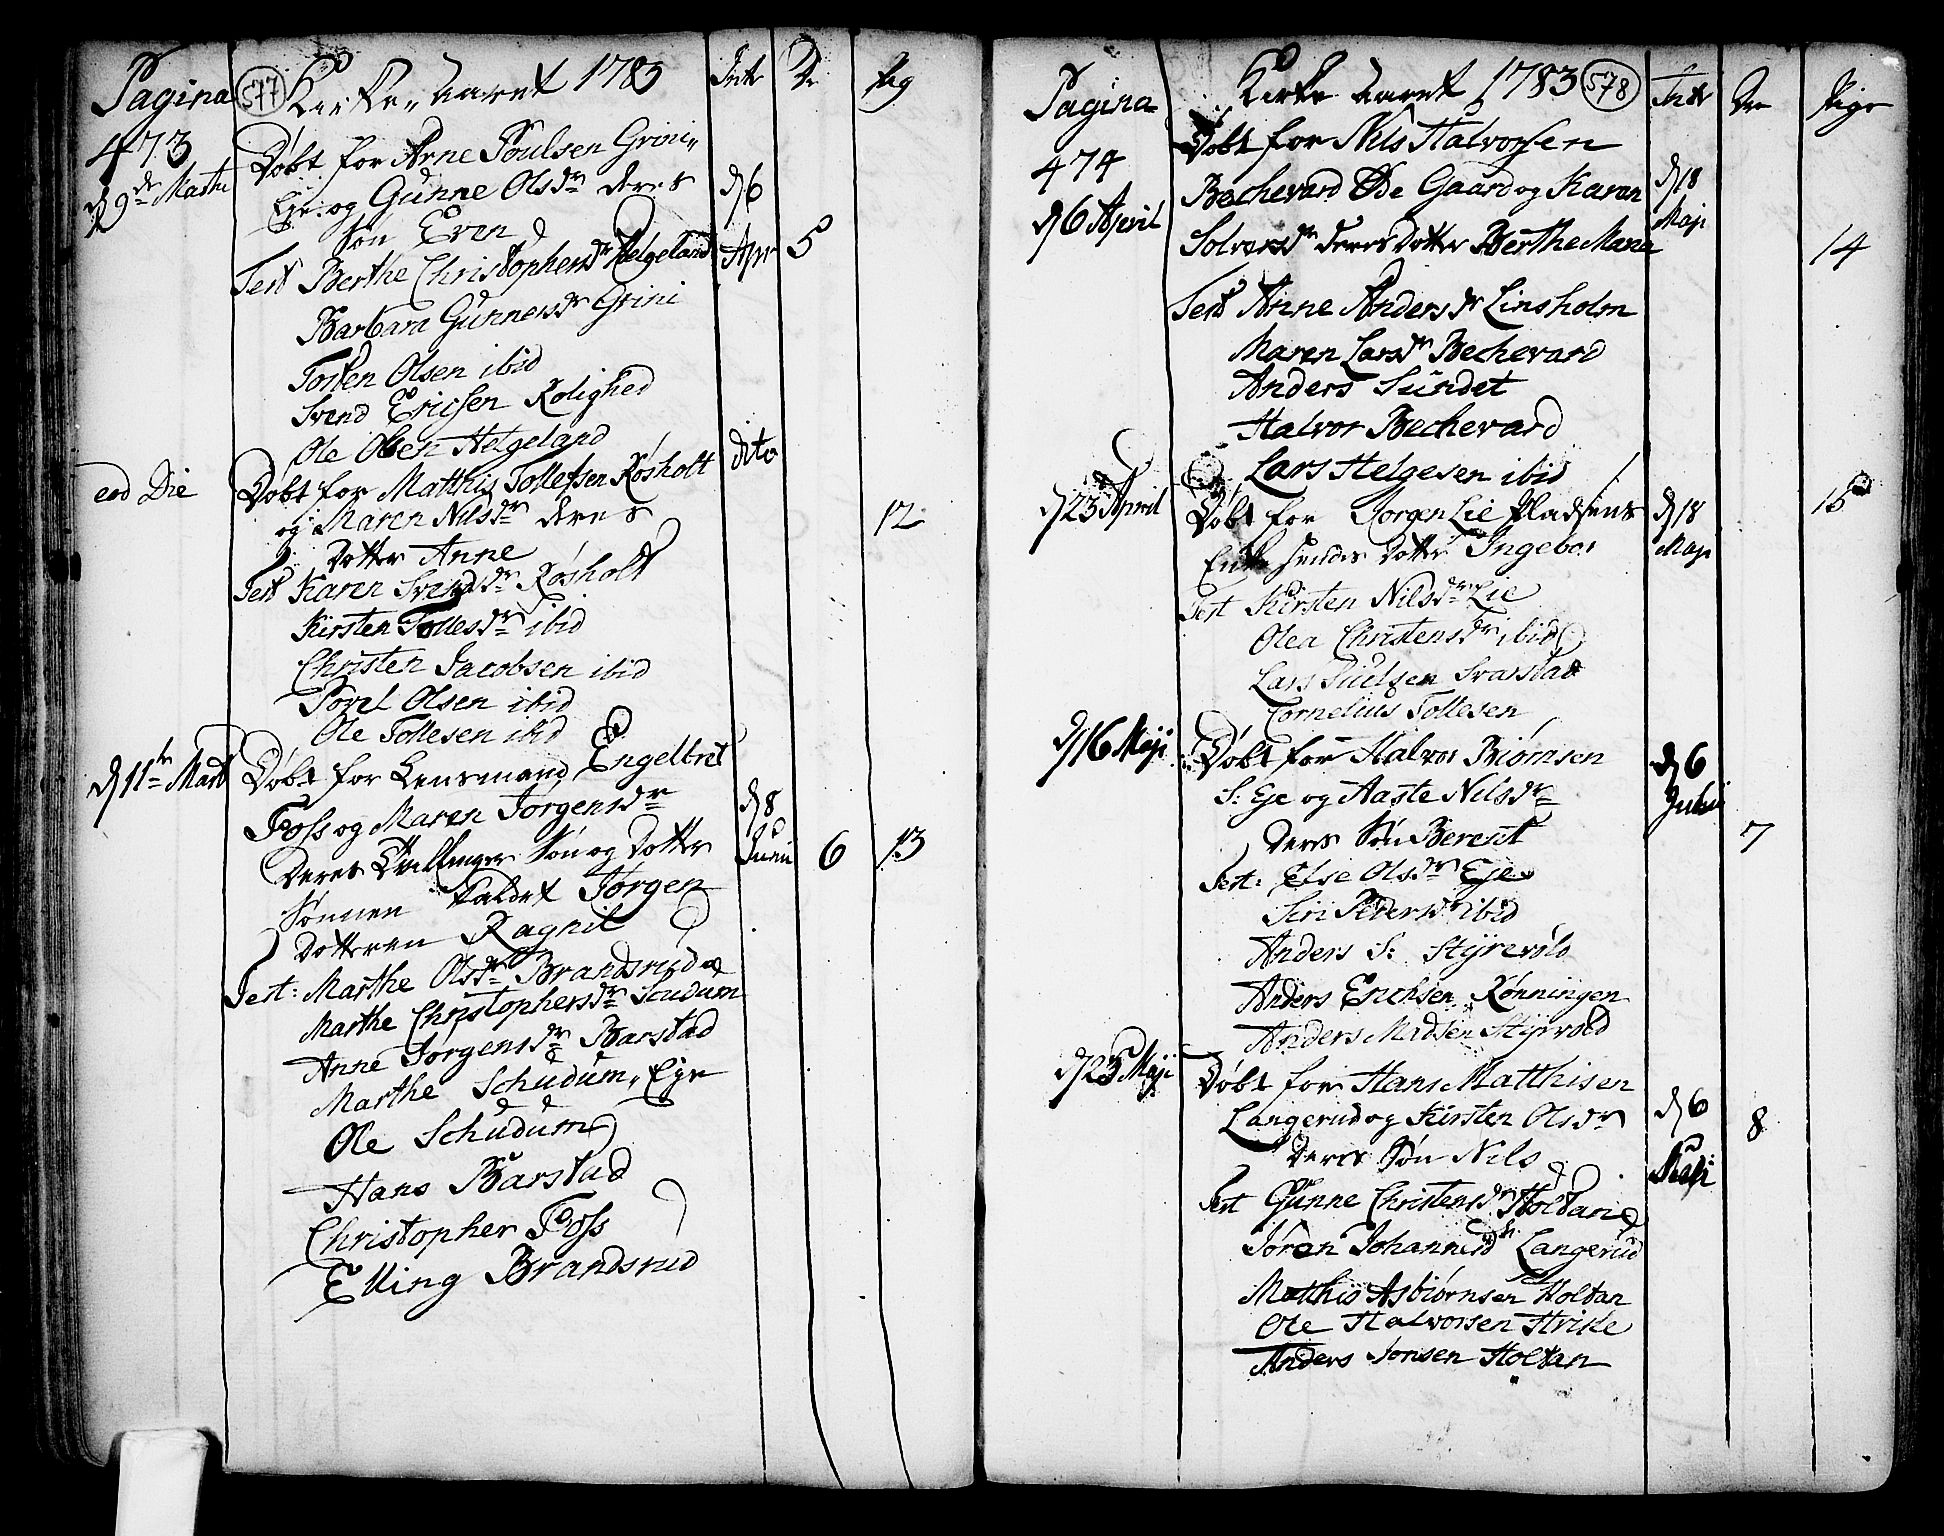 Pagina 577 Kirke-aaret 1783 Intr Dr Pig
473
d 9de Martii
Døbt for Arne Poulsen Grini,,
Eje: og Gunne Olsdr deres
Søn Even
d 6 Apr 5
Test Berthe Christophersdr Helgeland
Barbara Gunnersdr Grini
Torsten Olsen ibid
Svend Ericsen Rolighed
Ole Olsen Helgeland
eod Die
Døbt for Matthis Tollefsen Røsholt
dito
og Maren Nilsdr deres
12
Dotter Anne
Test Karen Svendsdr Røsholt
Kirsten Tollesdr ibid
Christen Jacobsen ibid
Povel Olsen ibid
Ole Tollesen ibid
d 11te Marti
Døbt for Lensmand Engelbret
Foss og Maren Jørgensdr
d 8 Juni
Deres Tvillinger Søn og Dotter
6 13
Sønnen kaldet Jørgen
Dotteren Ragnil
Test: Marthe Olsdr Brandsrud
Marthe Christophersdr Scudum
Anne Jørgensdr Barstad
Marthe Schudum,, Eje
Ole Schudum
Hans Barstad
Christopher Foss
Elling Brandsrud
Pagina Kirke aaret 1783 578 Intr Dr Pige
474
d 6 April
Døbt for Nils Halvorsen
Bechevard Øde Gaard og Karen
d 18 Maji
Solvesdr deres Dotter Berthe Marie
14
Test Anne Andersdr Linsholm
Maren Larsdr Bechevard
Anders Sundet
Halvor Bechevard
Lars Helgesen ibid
d 23 April
Døbt for Jorgen Lie Pladsens
d 18 Maji
15
Enke hendes Dotter Ingebor
Test Kirsten Nilsdr Lie
Olea Christensdr ibid
Lars Svarstad
Cornelius Tollesen
d 16 Maji
Døbt for Halvor Biørnsen
S: Eje og Aaste Nilsdr
d 6 Julii
Deres Søn Berent
7
Test: Else Olsdr Eje
Siri Pedersdr ibid
Anders S: Styrevold
Anders Erichsen Rønningen
Anders Madsen Styrvold
d 23 Maji
Døbt for Hans Matthisen
Langerud og Kirsten Olsdr
d 6
8
Deres Søn Nils
Test Gunne Christensdr Holtan
Jøran Johannisdr Langerud
Matthis Asbiørnsen Holtan
Ole Halvorsen Strike
Anders Jonsen Holtan